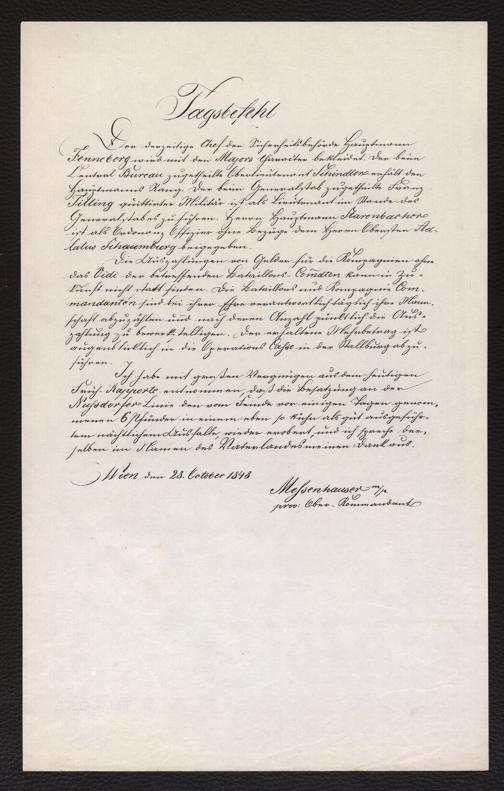 Tagsbefehl
Der derzeitige Chef der Sicherheitsbehörde Hauptmann
Fenneberg wird mit den Majors Charakter bekleidet. Der beim
Central Bureau zugetheilte Oberlieutenant Schindler erhält den
Hauptmanns Rang. Der beim Generalstab zugetheilte Franz
Titling quittirter Militär ist als Lieutenant im Stande des
Generalstabes zu führen. Herrn Hauptmann
ist als Ordonnanz Offizier ohne Bezüge dem Herrn Obersten Ad-
latus Schaumburg beigegeben.
Die Auszahlungen von Geldern für die Kompagnien ohne
das Vidi der betreffenden Bataillons-Comdten kann in Zu-
kunft nicht statt finden. Die Bataillons und Kompagnie Com-
mandanten sind bei ihrer Ehre verantwortlich täglich ihre Mann-
schaft abzuzählen und nach deren Anzahl pünktlich die Aus-
zahlung zu bewerkstelligen. Der erhaltene Mehrbetrag ist
augenblicklich in die Operations Casse in der Stallburg abzu-
führen.
Ich habe mit großen Vergnügen aus dem heutigen
Früh-Rapporte entnommen, daß die Besatzung an der
Nussdorfer-Linie den vom Feinde vor einigen Tagen genom-
menen 6 Pfünder in einem eben so kühn als gut ausgeführ-
tem nächtlichen Ausfalle wieder erobert, und ich spreche der-
selben im Namen des Vaterlandes meinen Dank aus.
Wien den 23. October 1848
Messenhauser m/p.
prov: Ober-Kommandant